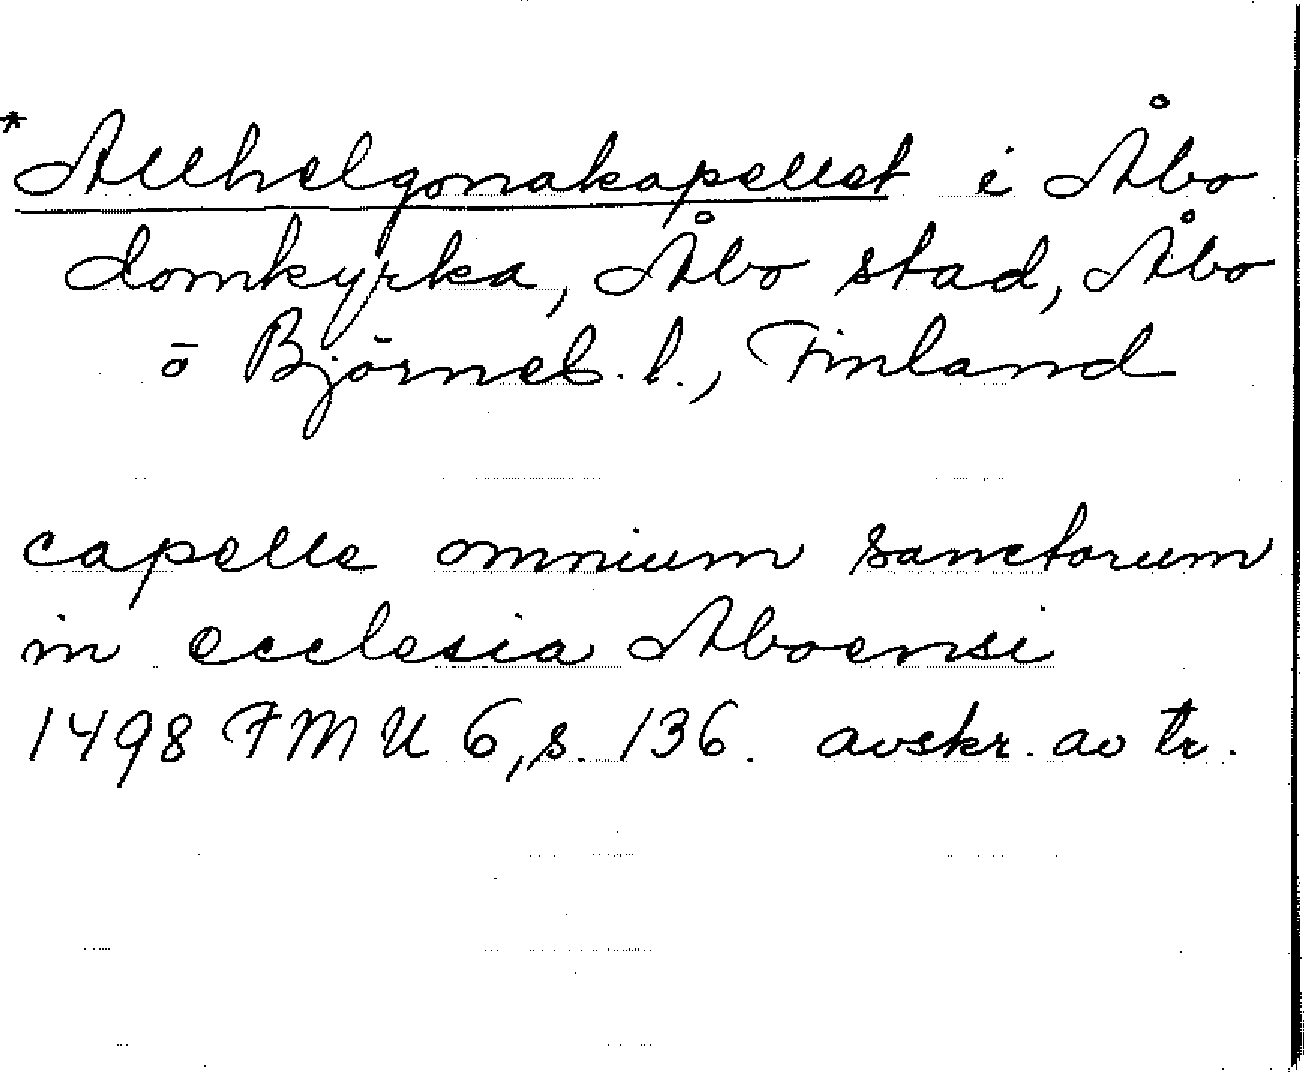 *Allhelgonakapellet i Åbo
domkyrka, Åbo stad, Åbo
o Björneb. l., Finland
capelle omnium sanctorum
in ecclesia Aboensi
1498 FMU 6, s. 136. avskr. av tr.